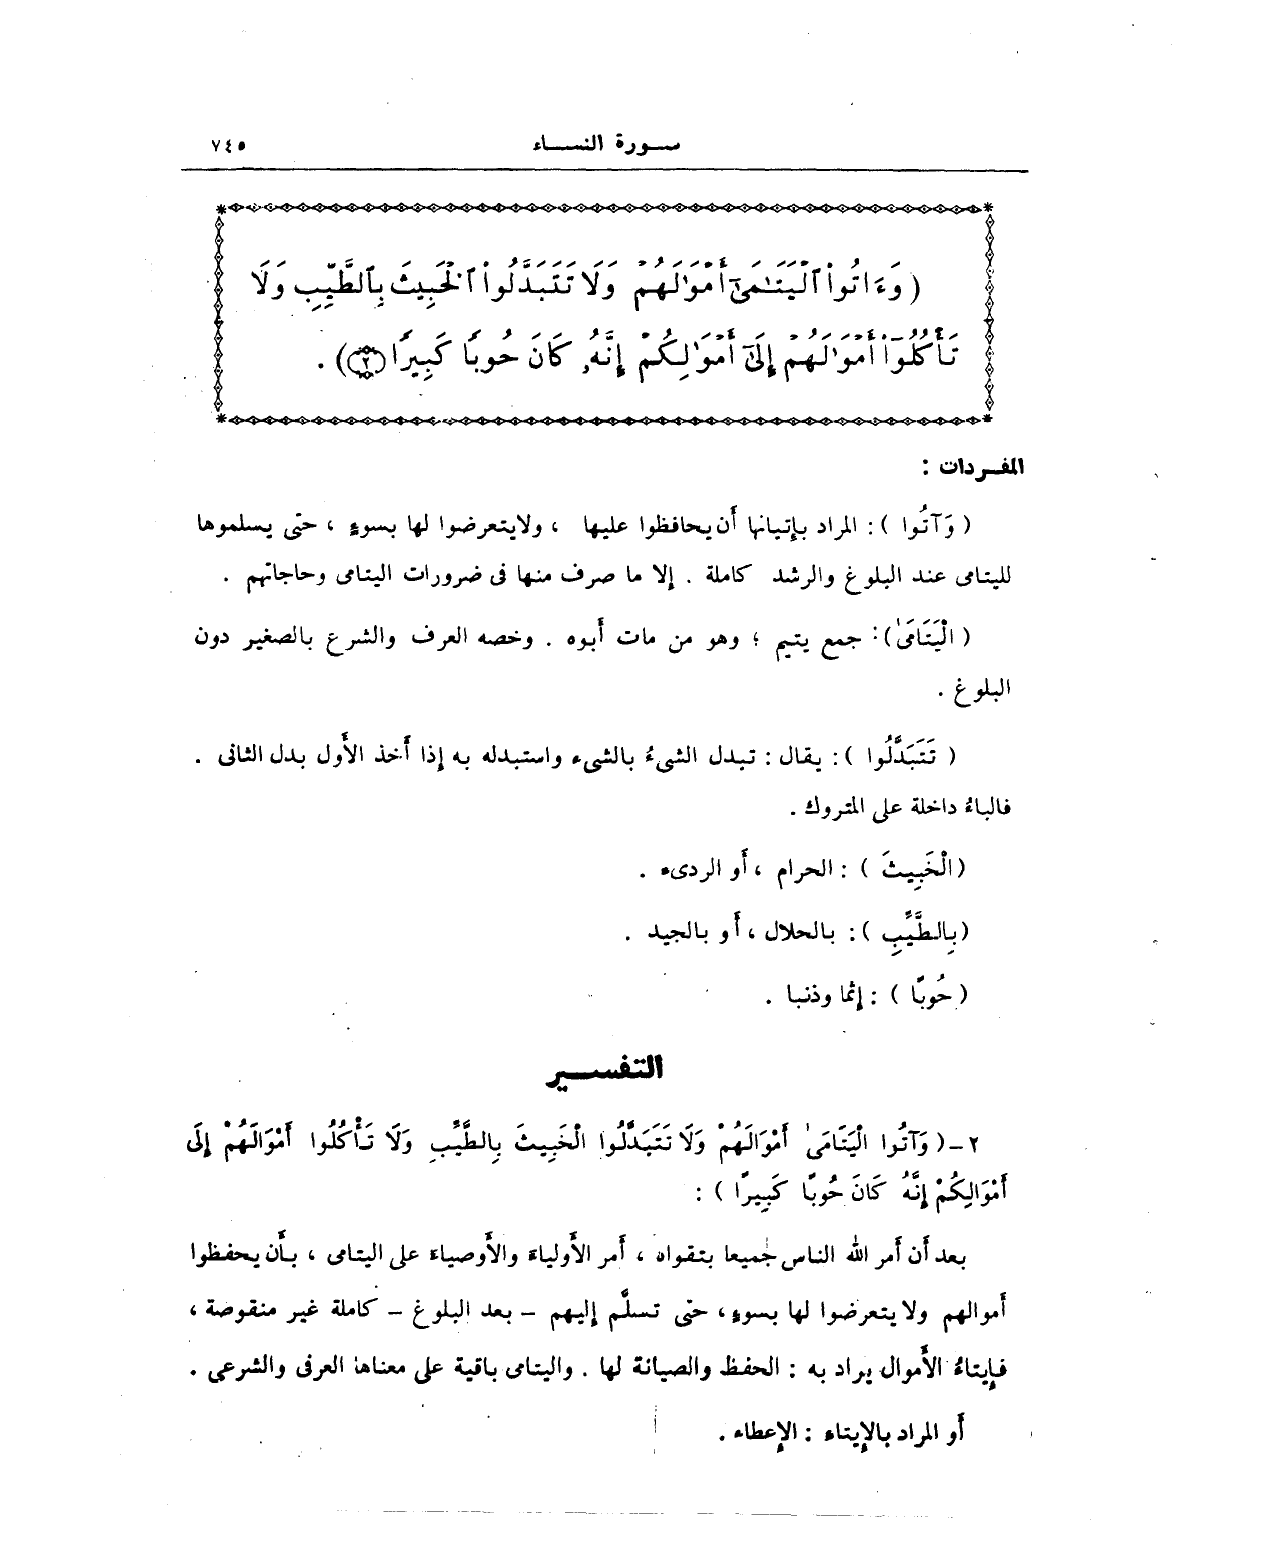 سورة النساء ٧٤٥
( وَءَاتُوا۟ ٱلْيَتَـٰمَىٰٓ أَمْوَٰلَهُمْ وَلَا تَتَبَدَّلُوا۟ ٱلْخَبِيثَ بِٱلطَّيِّبِ وَلَا
تَأْكُلُوٓا۟ أَمْوَٰلَهُمْ إِلَىٰٓ أَمْوَٰلِكُمْ إِنَّهُۥ كَانَ حُوبًا كَبِيرًا ٢ ) .
المفردات :
( وَآتُوا ) : المراد بإتيانها أن يحافظوا عليها ، ولايتعرضوا لها بسوءٍ ، حتى يسلموها
لليتامى عند البلوغ والرشد كاملة . إلا ما صرف منها فى ضرورات اليتامى وحاجاتهم .
( الْيَتَامَىٰ ) : جمع يتيم ؛ وهو من مات أبوه . وخصه العرف والشرع بالصغير دون
البلوغ .
( تَتَبَدَّلُوا ) : يقال : تبدل الشىءُ بالشىء واستبدله به إذا أخذ الأول بدل الثانى .
فالباءُ داخلة على المتروك .
( الْخَبِيثَ ) : الحرام ، أو الردىء .
( بِالطَّيِّبِ ) : بالحلال ، أو بالجيد .
( حُوبًا ) : إثما وذنبا .
التفسير
٢ - ( وَآتُوا الْيَتَامَىٰ أَمْوَالَهُمْ وَلَا تَتَبَدَّلُوا الْخَبِيثَ بِالطَّيِّبِ وَلَا تَأْكُلُوا أَمْوَالَهُمْ إِلَى
أَمْوَالِكُمْ إِنَّهُ كَانَ حُوبًا كَبِيرًا ) :
بعد أن أمر الله الناس جميعا بتقواه ، أمر الأولياءَ والأوصياءَ على اليتامى ، بأن يحفظوا
أموالهم ولا يتعرضوا لها بسوءٍ ، حتى تسلَّم إليهم – بعد البلوغ – كاملة غير منقوصة ،
فإيتاءُ الأموال يراد به : الحفظ والصيانة لها . واليتامى باقية على معناها العرفى والشرعى .
أو المراد بالإيتاء : الإعطاء .